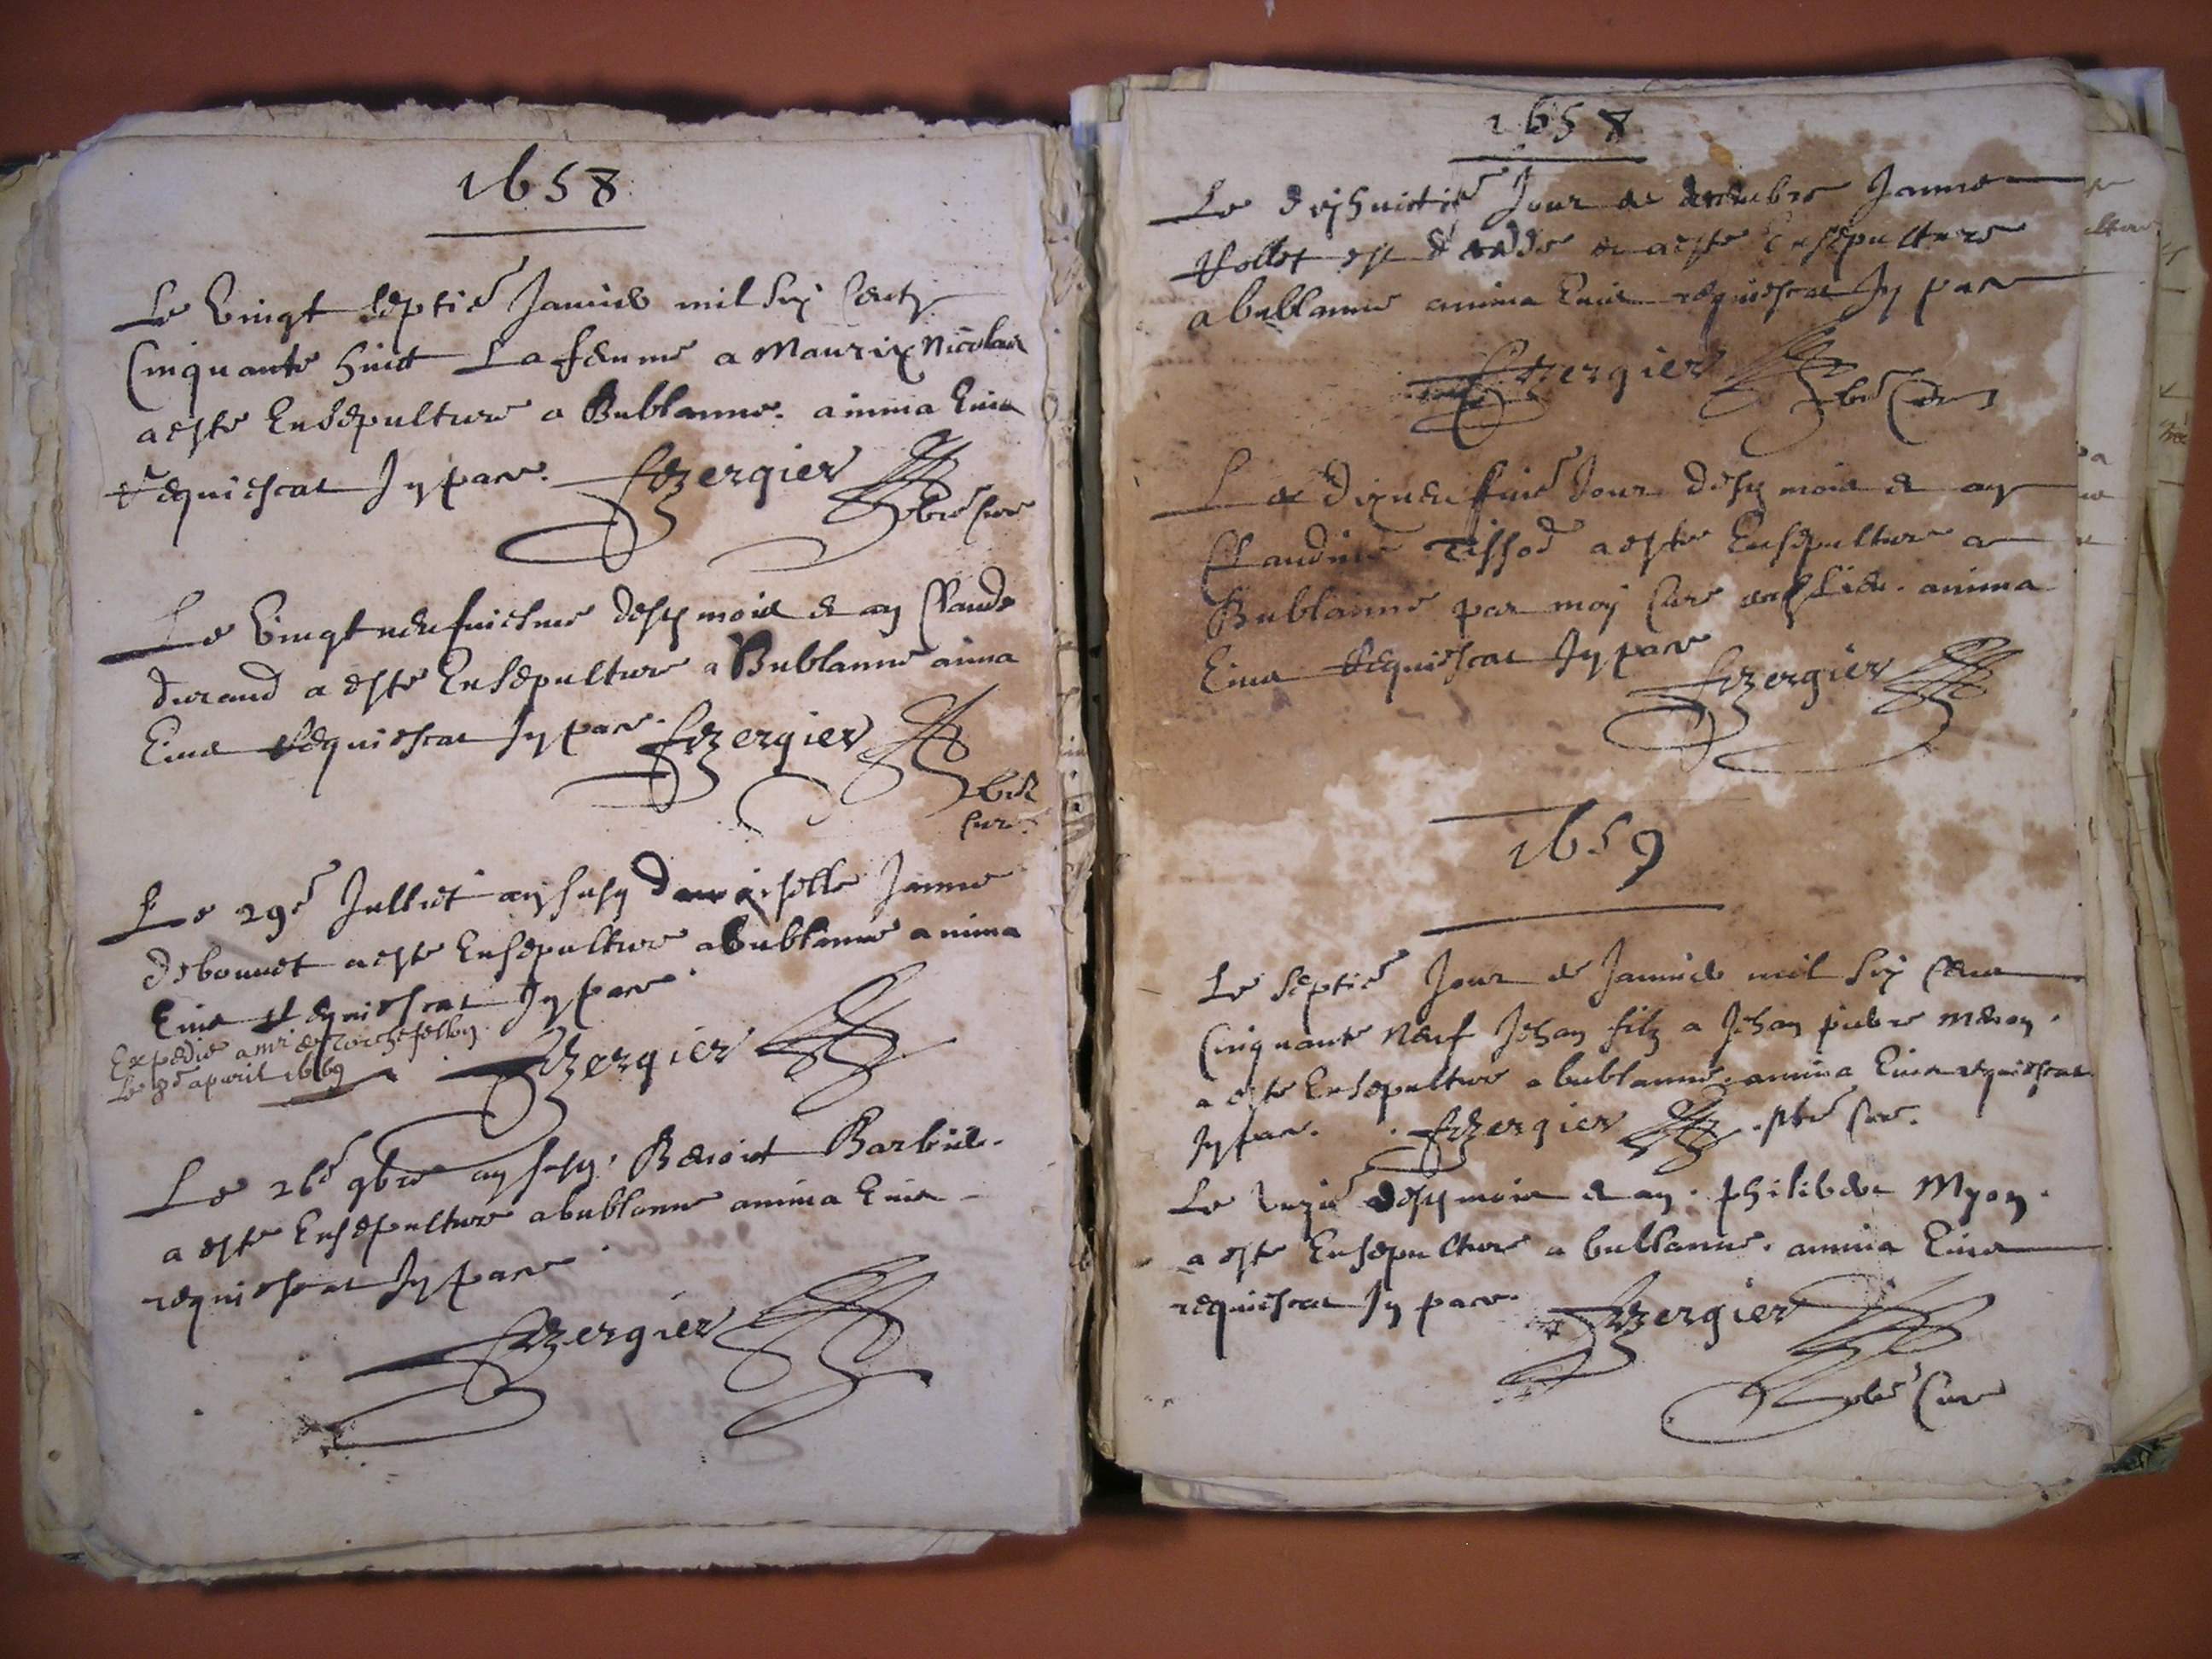 1658
Le vingt septie Janvier mil six centz
Cinquante huict La femme a Maurix Nicolas
a este Ensepulture a Bublanne. anima Eius
requiescat In pace. Bergier pbre Cure
Le vingt neufuiesme desd mois & an Claude
durand a este Ensepulture a Bublanne aima
Eius Requiescat In pace. Bergier pbre
Cure
Le 29e Jullliet an susd damoiselle Janne
debonnet a este Ensepulture a bublanne anima
Eius Requiescat In pace
Expedie a mr de
Le 8e apvril 1669
Bergier
Le 26e 9bre an susd. Benoict Barbier.
a este Ensepulture a bublanne anima Eius
requiescat In pace
Bergier
1658
Le dixhuictie Jour de decembre Janne
est decede & a este Ensepulture
a bublanne anima Eius requiescat In pace
Bergier pbre Cure
Le dixneuffuie Jour desd mois & an
Claudine Tissod a este Ensepulture a
Bublanne par moy Cure anima
Eius Requiescat In pace
Bergier
1659
Le septie Jour de Janvier mil six cens
Cinquante Neuf Jehan filz a Jehan pierre
a este Ensepulture a bublanne. anima Eius requiescat
In pace. Bergier. pbre Cure.
Le desd mois & an. philiber Myon.
a este Ensepulture a bublanne. anima Eius
requiescat In pace. Bergier
pbre Cure